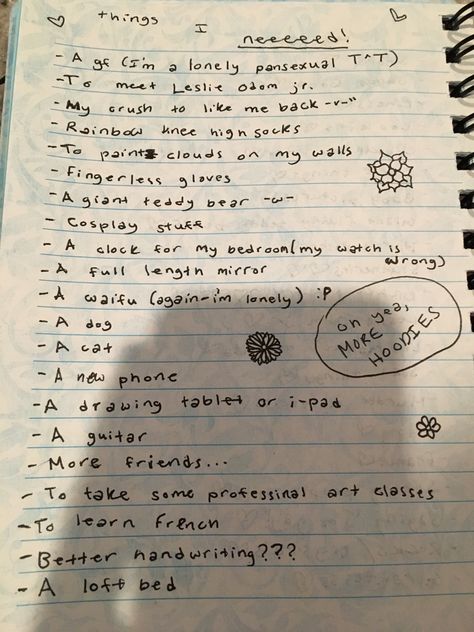 things I
neeeeed!
- A gf (I'm a lonely pansexual T^T)
- To meet Leslie Odom jr.
- My crush to like me back -v-"
- Rainbow knee high socks
- To paint clouds on my walls
- Fingerless gloves
- A giant teddy bear -w-
- Cosplay stuff
- A clock for my bedroom (my watch is wrong)
- A full length mirror
- A waifu (again-i'm lonely) :P
- A dog
- A cat
oh yea,
MORE
HOODIES
- A new phone
- A drawing tablet or i-pad
- A guitar
- More friends...
- To take some professinal art classes
- To learn French
- Better handwriting???
- A loft bed